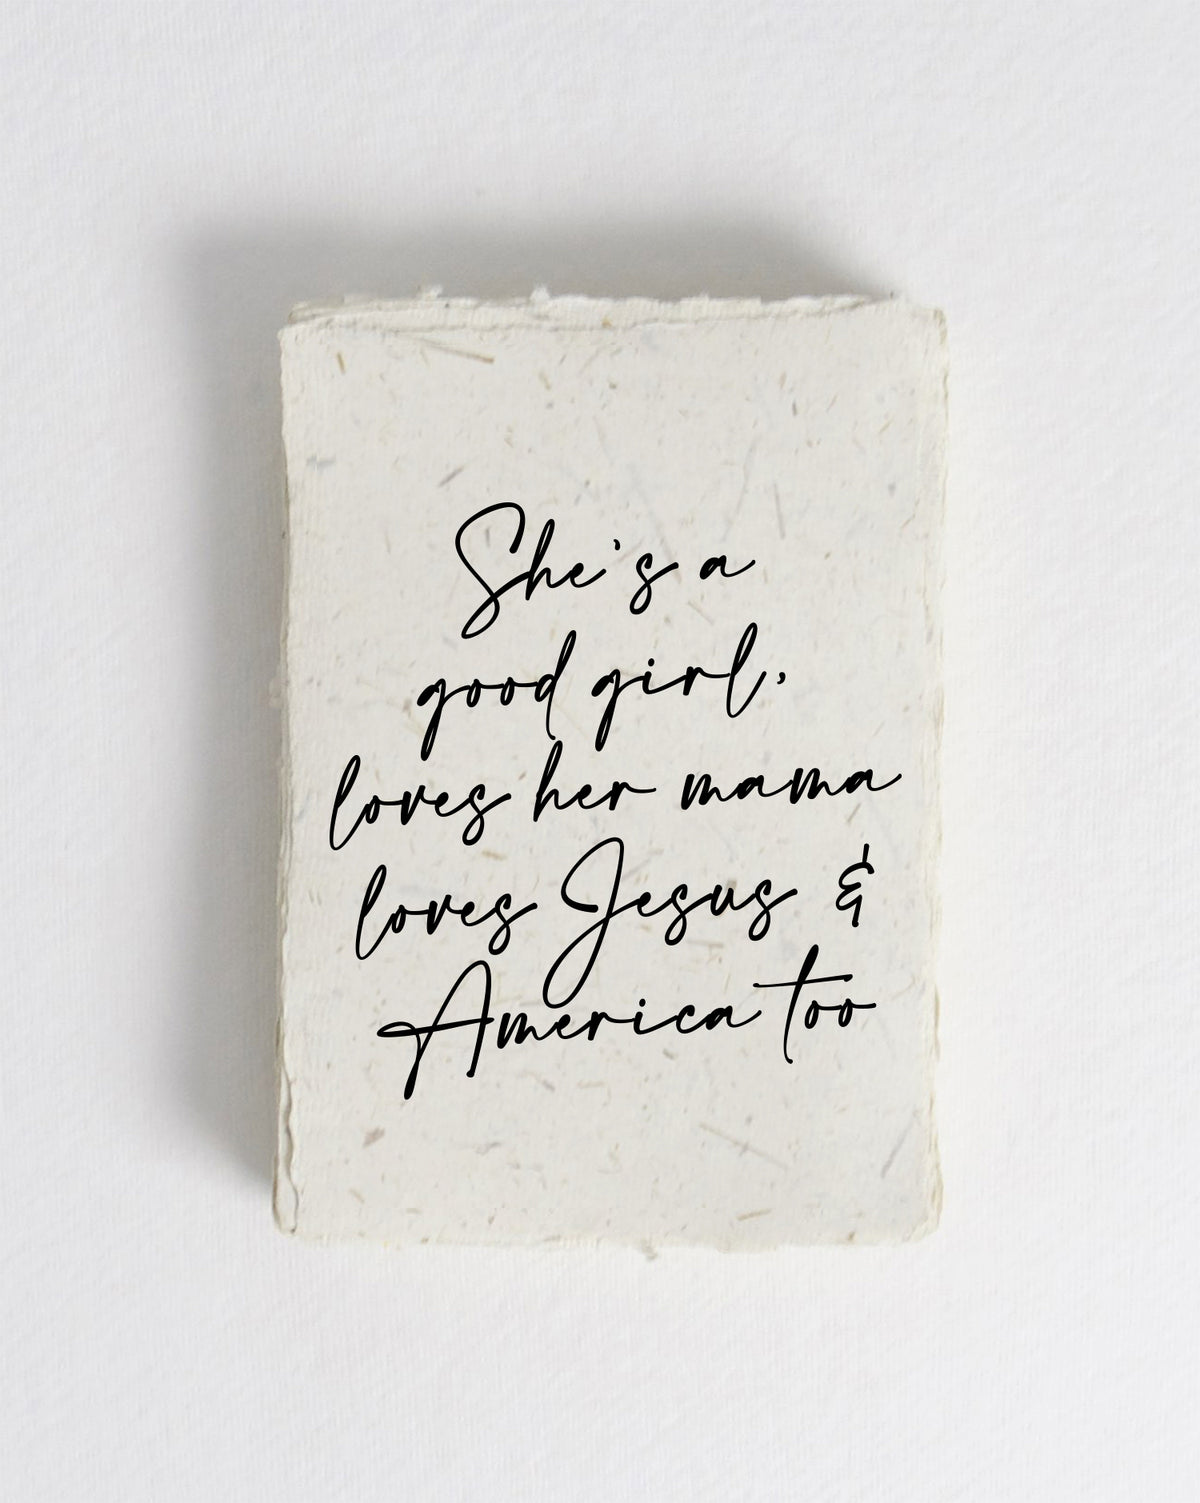 She's a
good girl,
loves her mama
loves Jesus &
America too